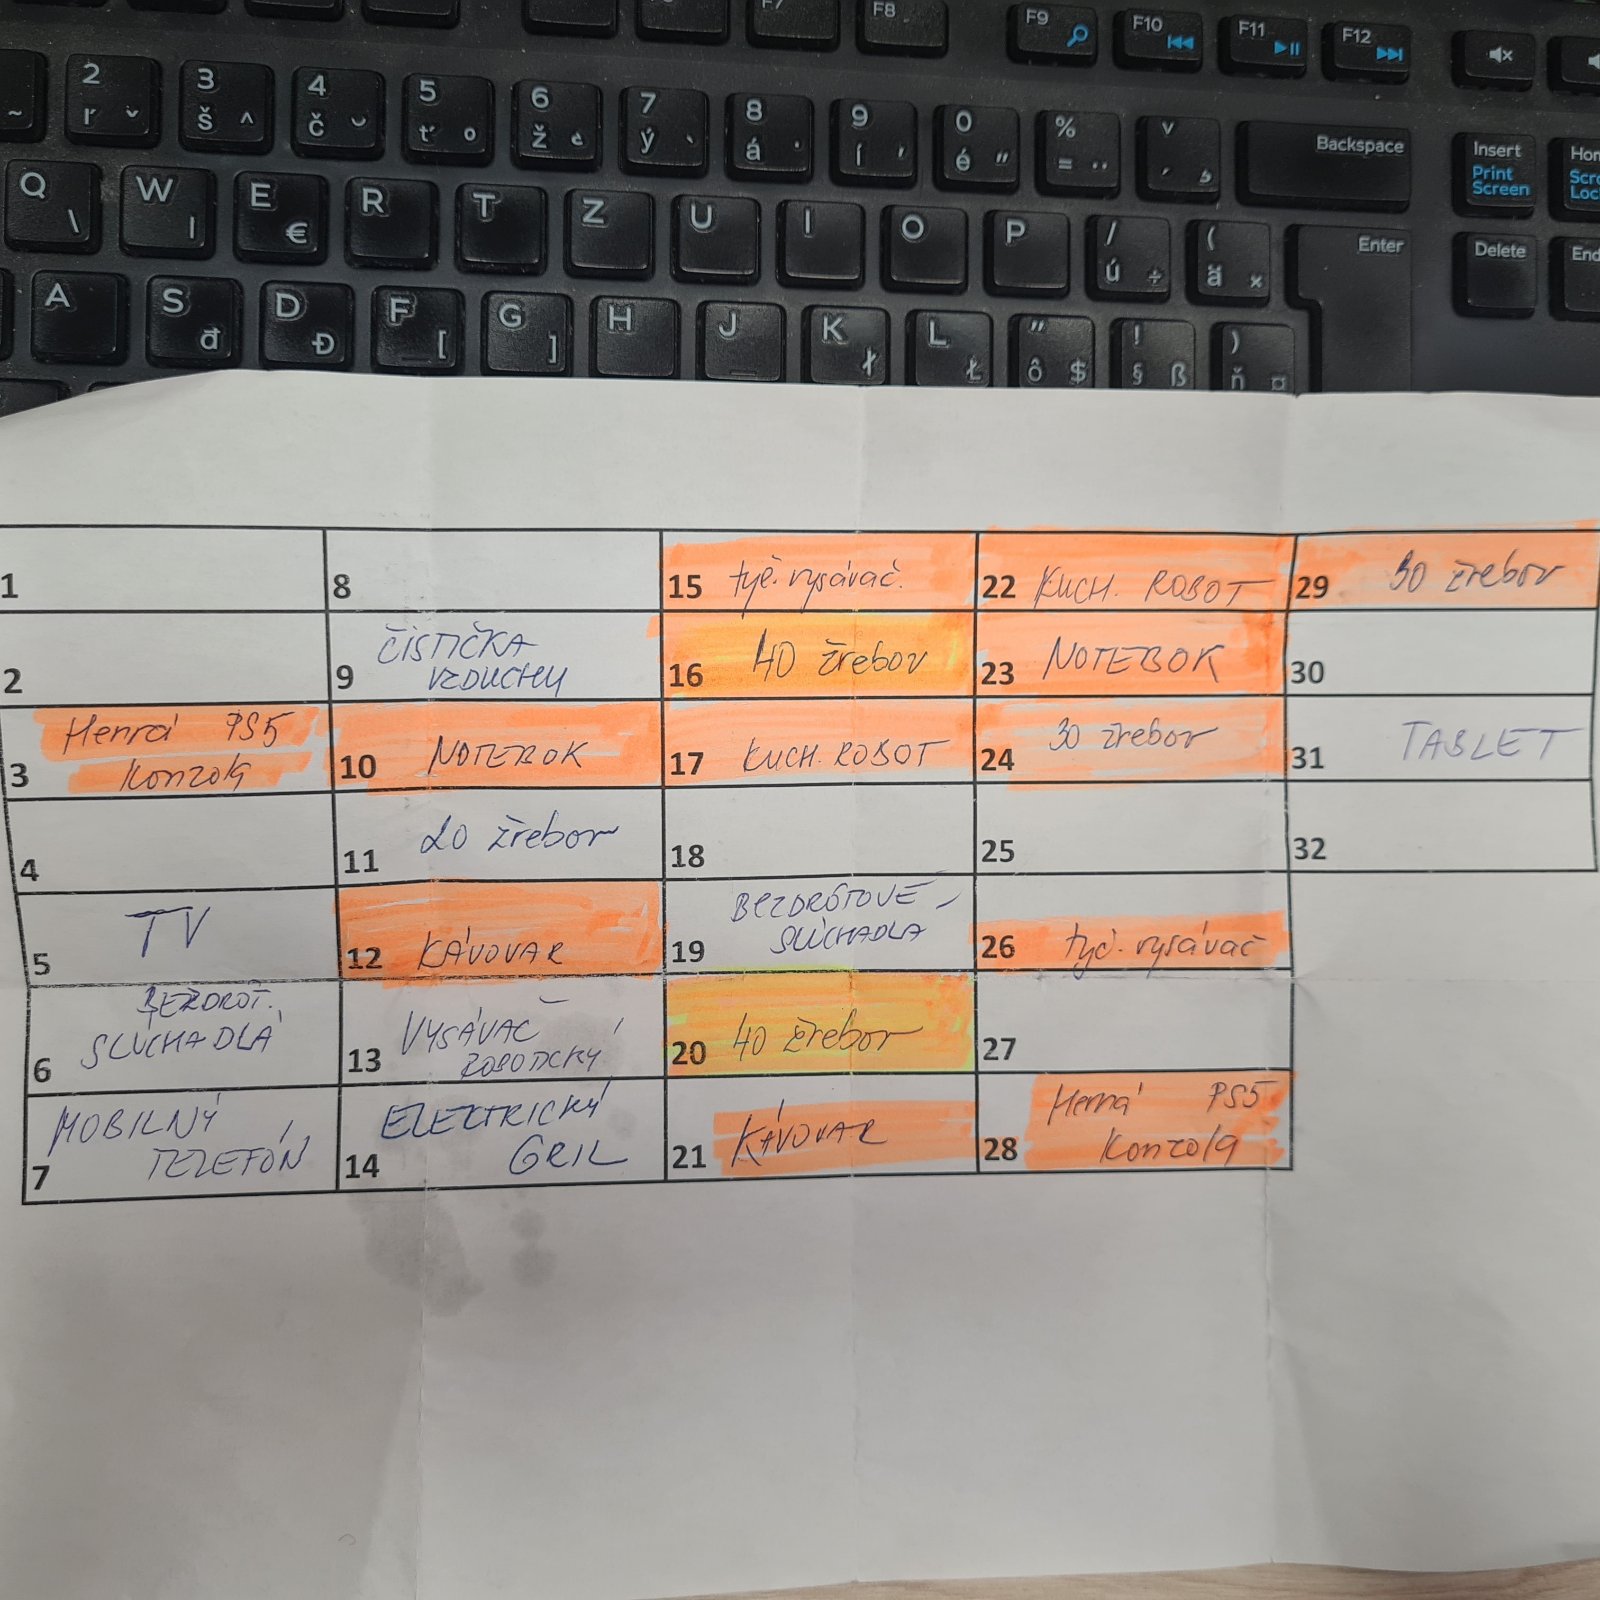 F7 F8 F9 F10 F11 F12
2 ľ ˇ 3 š ^ 4 č ˘ 5 ť ° 6 ž ˛ 7 ý ` 8 á ˙ 9 í ´ 0 é ˝ % = ¨ ˇ ´ ¸ Backspace Insert Print Screen
~ Q \ W | E € R T Z U I O P / ú ÷ ( ä × Enter Delete End
A S đ D Đ F [ G ] H J K ł L Ł " ô $ ! § ß ) ň ¤
1 8 15 tyč. vysávač. 22 KUCH. ROBOT 29 30 žrebov
2 9 ČISTIČKA
VZDUCHU 16 40 žrebov 23 NOTEBOK 30
3 Herná PS5
Konzola 10 NOTEBOK 17 KUCH. ROBOT 24 30 žrebov 31 TABLET
4 11 20 žrebov 18 25 32
5 TV 12 KÁVOVAR 19 BEZDRÔTOVÉ
SLÚCHADLA 26 tyč. vysávač
6 BEZDRÔT.
SLÚCHADLÁ 13 VYSÁVAČ
ROBOTICKÝ 20 40 žrebov 27
7 MOBILNÝ
TELEFÓN 14 ELEKTRICKÝ
GRIL 21 KÁVOVAR 28 Herná PS5
Konzola